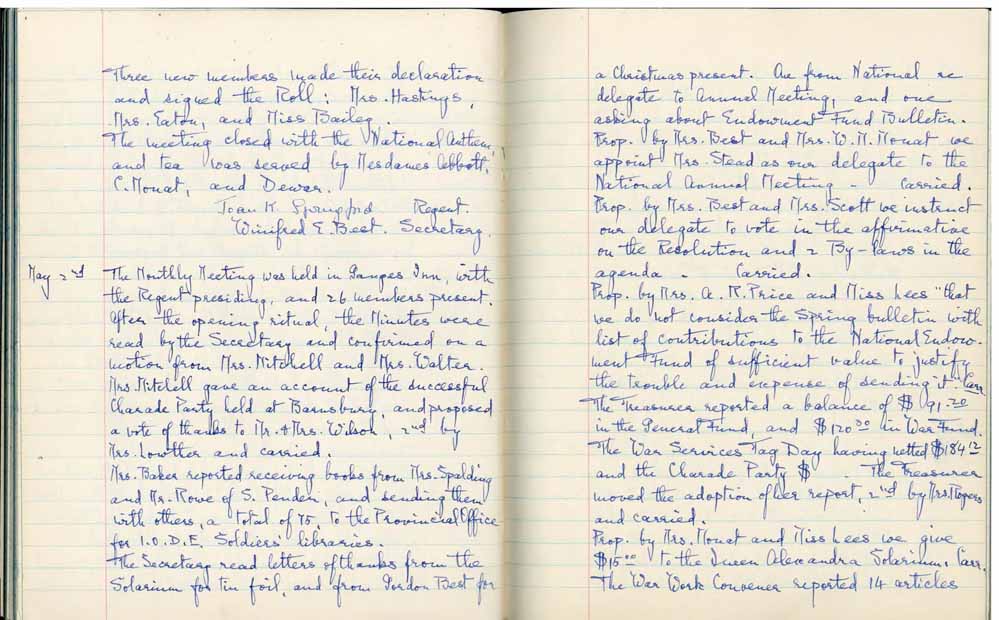 Three new members made their declaration
and signed the Roll: Mrs. Hastings,
Mrs. Eaton, and Miss Bailey.
The meeting closed with the National Anthem,
and tea was served by Mesdames Abbott,
C. Mouat, and Dewar.
Joan K. Springford Regent.
Winifred E. Best. Secretary.
May 2nd The Monthly Meeting was held in Ganges Inn, with
the Regent presiding, and 26 members present.
After the opening ritual, the Minutes were
read by the Secretary and confirmed on a
motion from Mrs. Mitchell and Mrs. Walter.
Mrs. Mitchell gave an account of the successful
Charade Party held at Barnsbury, and proposed
a vote of thanks to Mr. & Mrs. Wilson, 2nd by
Mrs. Lowther and carried.
Mrs. Baker reported receiving books from Mrs. Spalding
and Mr. Rowe of S. Pender, and sending them
with others, a total of 75, to the Provincial Office
for I.O.D.E. Soldiers' libraries.
The Secretary read letters of thanks from the
Solarium for tin foil, and from Gordon Best for
a Christmas present. One from National re
delegate to Annual Meeting, and one
asking about Endowment Fund Bulletin.
Prop. by Mrs. Best and Mrs. W. M. Mouat we
appoint Mrs. Stead as our delegate to the
National Annual Meeting - carried.
Prop. by Mrs. Best and Mrs. Scott we instruct
our delegate to vote in the affirmative
on the Resolution and 2 By-laws in the
agenda - Carried.
Prop. by Mrs. A. R. Price and Miss Lees "that
we do not consider the Spring bulletin with
list of contributions to the National Endow-
ment Fund of sufficient value to justify
the trouble and expense of sending it". Carr.
The Treasurer reported a balance of $91.20
in the General Fund, and $120.00 in War Fund.
The War Services Tag Day having netted $184.12
and the Charade Party $ . The Treasurer
moved the adoption of her report, 2nd by Mrs. Rogers
and carried.
Prop. by Mrs. Mouat and Miss Lees we give
$15.00 to the Queen Alexandra Solarium. Carr.
The War Work Convener reported 14 articles